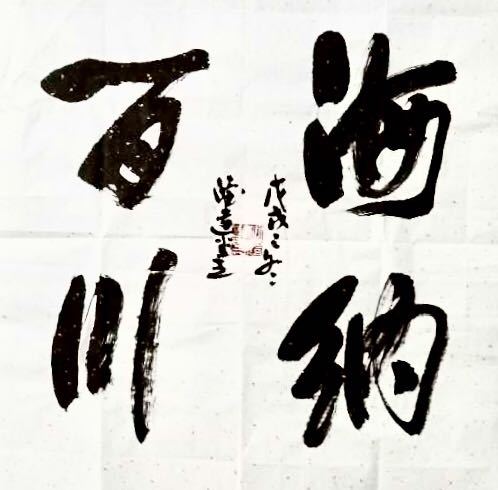 海纳
百川
戊戌之冬